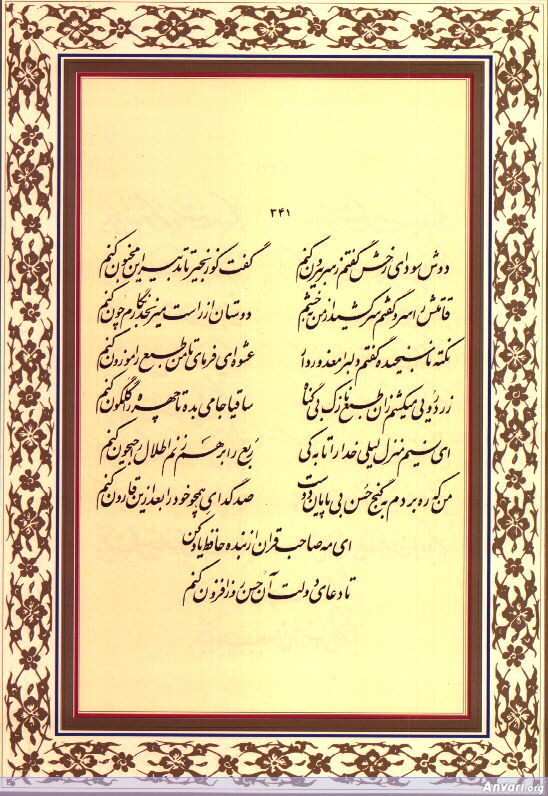 ۳۴۱
دوش سودای رخش گفتم ز سر بیرون کنم گفت کو زنجیر تا تدبیر این مجنون کنم
قامتش را سرو گفتم سر کشید از من بخشم دوستان از راست میرنجد نگارم چون کنم
نکته ناسنجیده گفتم دلبرا معذور دار عشوه ای فرمای تا من طبع را موزون کنم
زرد رویی میکشم زان طبع نازک بی گناه ساقیا جامی بده تا چهره را گلگون کنم
ای نسیم منزل لیلی خدا را تا به کی ربع را برهم زنم اطلال را جیحون کنم
من که ره بردم به گنج حسن بی پایان دوست صد گدای همچو خود را بعد ازین قارون کنم
ای مه صاحب قران از بنده حافظ یاد کن
تا دعای دولت آن حسن روز افزون کنم
Anvari.org